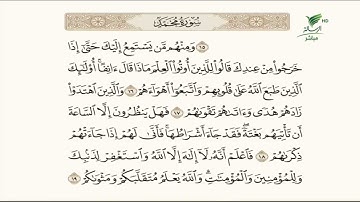 سُورَةُ مُحَمَّد
HD
الرسالة
مباشر
١٥ وَمِنْهُم مَّن يَسْتَمِعُ إِلَيْكَ حَتَّىٰٓ إِذَا
خَرَجُوا۟ مِنْ عِندِكَ قَالُوا۟ لِلَّذِينَ أُوتُوا۟ ٱلْعِلْمَ مَاذَا قَالَ ءَانِفًا أُو۟لَٰٓئِكَ
ٱلَّذِينَ طَبَعَ ٱللَّهُ عَلَىٰ قُلُوبِهِمْ وَٱتَّبَعُوٓا۟ أَهْوَآءَهُمْ ١٦ وَٱلَّذِينَ ٱهْتَدَوْا۟
زَادَهُمْ هُدًى وَءَاتَىٰهُمْ تَقْوَىٰهُمْ ١٧ فَهَلْ يَنظُرُونَ إِلَّا ٱلسَّاعَةَ
أَن تَأْتِيَهُم بَغْتَةً فَقَدْ جَآءَ أَشْرَاطُهَا فَأَنَّىٰ لَهُمْ إِذَا جَآءَتْهُمْ
ذِكْرَىٰهُمْ ١٨ فَٱعْلَمْ أَنَّهُۥ لَآ إِلَٰهَ إِلَّا ٱللَّهُ وَٱسْتَغْفِرْ لِذَنۢبِكَ
وَلِلْمُؤْمِنِينَ وَٱلْمُؤْمِنَٰتِ وَٱللَّهُ يَعْلَمُ مُتَقَلَّبَكُمْ وَمَثْوَىٰكُمْ ١٩